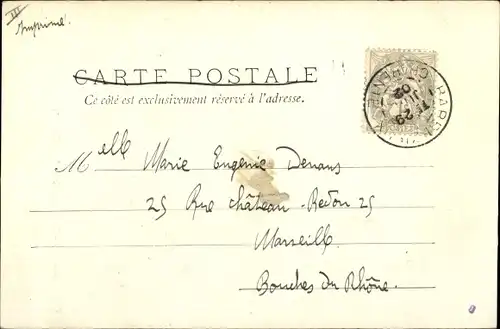 Imprimé.
CARTE POSTALE
Ce côté est exclusivement réservé à l'adresse.
Melle Marie Eugenie Denans
25 Rue Château-Redon 25
Marseille
Bouches du Rhône.
29
02